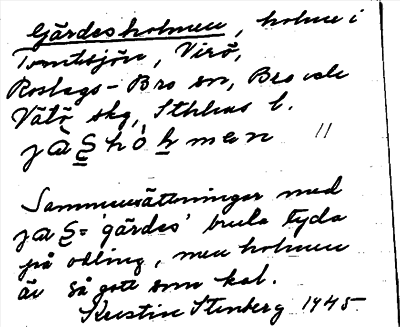 Gärdesholmen, holme i
Tomtsjön, Virö,
Roslags-Bro sn, Bro och
Vätö skg, Sthlms l.
jàʂhólmen
Sammansättningar med
jaʂ= 'gärdes' bruka tyda
på odling, men holmen
är så gott som kal.
Kerstin Stenberg 1945